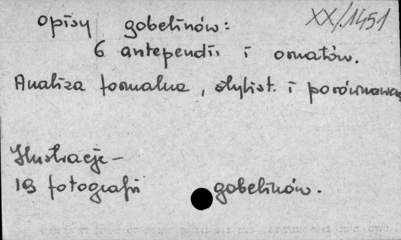 XX/1451
opisy gobelinów:
6 antependii i ornatów.
Analiza formalna, stylist. i porównawcza
Ilustracje –
19 fotografii gobelinów.